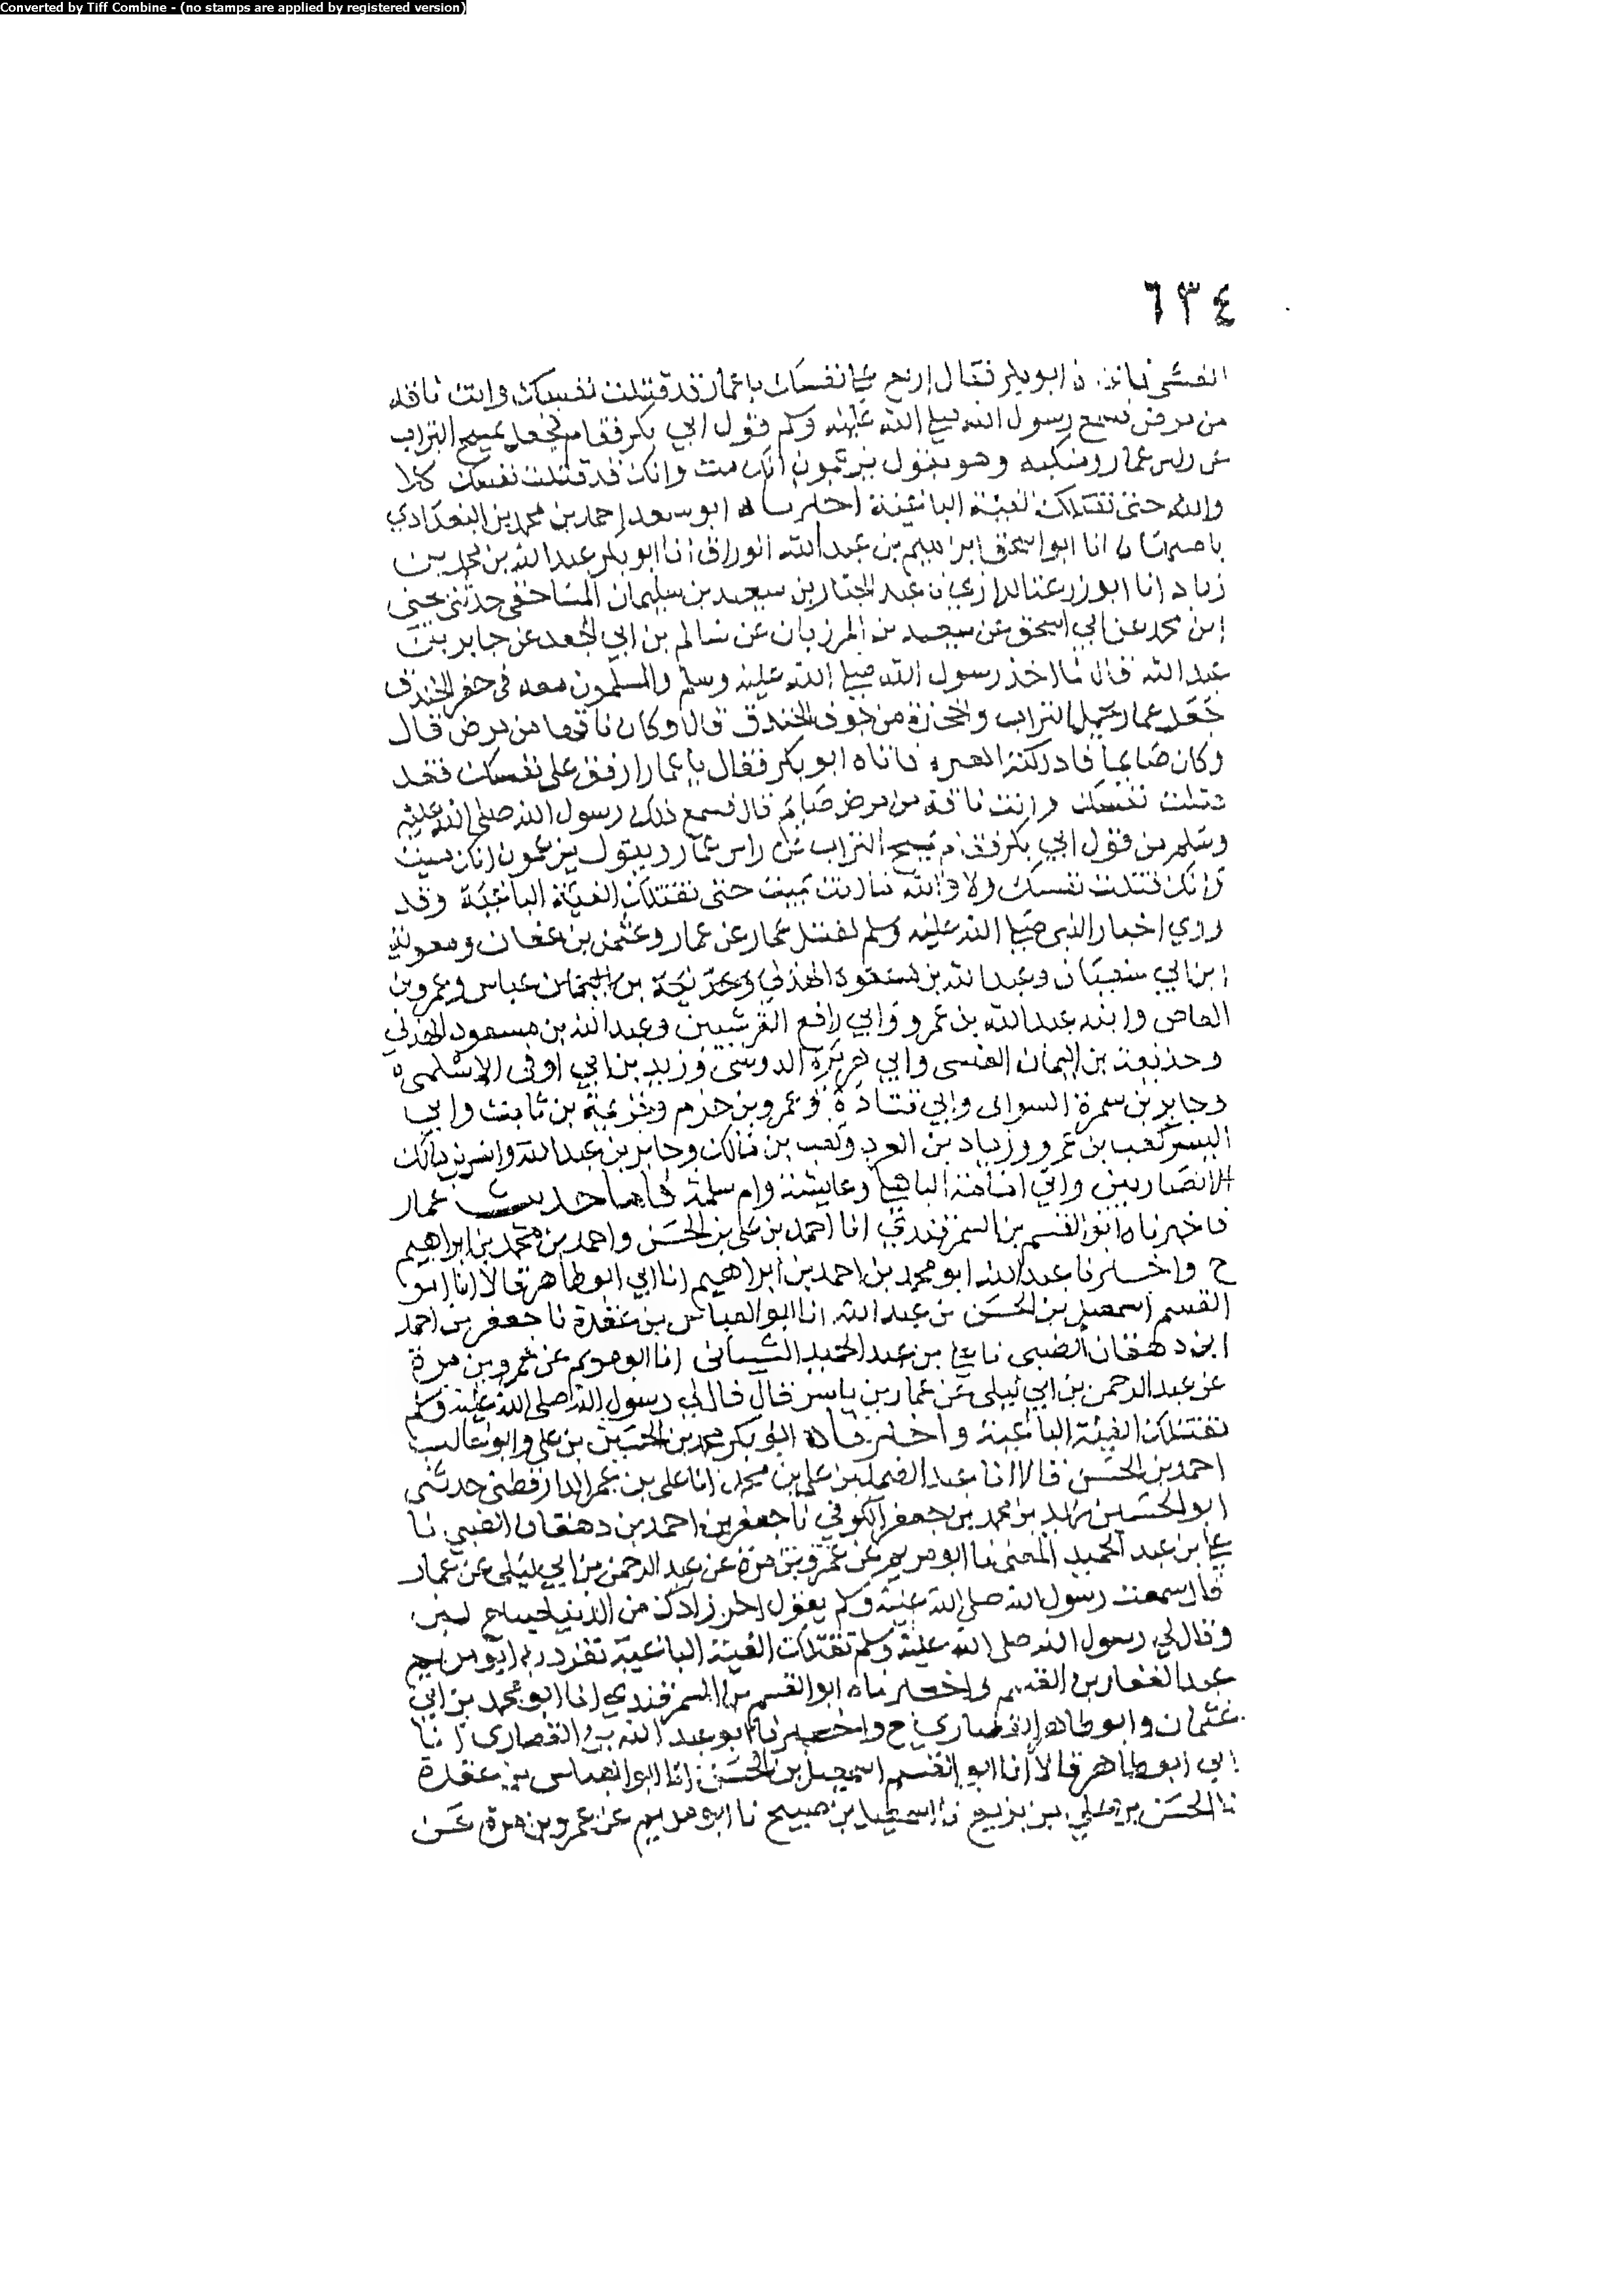 Converted by Tiff Combine - (no stamps are applied by registered version)
٦٣٤
ابو بكر فقال اربع على نفسك يا عمار قد قتلت نفسك وانت ناقه
من مرض فسمع رسول الله صلى الله عليه وسلم قول ابي بكر فقام فجعل يمسح التراب
عن راس عمار ومنكبه وهو يقول يزعمون انك مت وانك قد قتلت نفسك كلا
والله حتى تقتلك الفئة الباغية اخبرناه ابو سعد احمد بن محمد بن البغدادي
باصبهان انا ابو اسحق ابراهيم بن عبد الله الوراق انا ابو بكر عبد الله بن محمد بن
زياد انا ابو زرعة الرازي نا عبد الجبار بن سعيد بن سليمان المساحقي حدثني يحيى
ابن محمد عن ابي اسحق عن سعيد بن المرزبان عن سالم بن ابي الجعد عن جابر بن
عبد الله قال لما اخذ رسول الله صلى الله عليه وسلم والمسلمون معه في حفر الخندق
جعل عمار يحمل التراب والحجارة من جوف الخندق قال وكان ناقها من مرض قال
وكان صايما فادركته فاتاه ابو بكر فقال يا عمار ارفق على نفسك فقد
قتلت نفسك وانت ناقه من مرض صايم قال فسمع ذلك رسول الله صلى الله عليه
وسلم من قول ابي بكر فقام يمسح التراب عن راس عمار ويقول يزعمون انك ميت
وانك قتلت نفسك ولا والله ما انت بميت حتى تقتلك الفئة الباغية وقد
روي اخبار النبي صلى الله عليه وسلم لقتل عمار عن عمار وعثمن بن عفان ومعوية
ابن ابي سفيان وعبد الله بن مسعود الهذلي وحذيفة بن اليمان بن عباس وعمرو بن
العاص وابنه عبد الله بن عمرو وابي رافع القرشيين وعبد الله بن مسعود الهذلي
وحذيفة بن اليمان العبسي وابي هريرة الدوسي وزيد بن ابي اوفى الاسلمي
وجابر بن سمرة السوائي وابي قتادة وعمرو بن حزم وخزيمة بن ثابت وابي
اليسر كعب بن عمرو وزياد بن العرد وكعب بن مالك وجابر بن عبد الله وانس بن مالك
الانصاريين وابي امامة الباهلي وعايشة وام سلمة فاما حديث عمار
فاخبرناه ابو القسم بن السمرقندي انا احمد بن علي بن الحسن واحمد بن محمد بن ابراهيم
ح واخبرنا عبد الله ابو محمد بن احمد بن ابراهيم انا ابي ابو طاهر قالا انا ابو
القسم اسمعيل بن الحسن بن عبد الله انا ابو العباس بن عقدة نا جعفر بن احمد
ابن دهقان الضبي نا علي بن عبد الحميد الشيباني انا ابو مريم عن عمرو بن مرة
عن عبد الرحمن بن ابي ليلى عن عمار بن ياسر قال قال لي رسول الله صلى الله عليه وسلم
تقتلك الفئة الباغية واخبرناه ابو بكر محمد بن الحسين بن علي وابو غالب
احمد بن الحسن قالا انا عبد الصمد بن علي بن محمد انا علي بن عمر الدارقطني حدثني
ابو الحسين زيد بن محمد بن جعفر الكوفي نا جعفر بن احمد بن دهقان الضبي نا
علي بن عبد الحميد المعنى نا ابو مريم عن عمرو بن مرة عن عبد الرحمن بن ابي ليلى عن عمار
قال سمعت رسول الله صلى الله عليه وسلم يقول اخر زادك من الدنيا ضياح لبن
وقال لي رسول الله صلى الله عليه وسلم تقتلك الفئة الباغية تفرد به ابو مريم
عبد الغفار بن القسم واخبرناه ابو القسم بن السمرقندي انا ابو محمد بن ابي
عثمان وابو طاهر القصاري ح واخبرنا ابو عبد الله بن القصاري انا
ابي ابو طاهر قالا انا ابو القسم اسمعيل بن الحسن انا ابو العباس بن عقدة
نا الحسن بن علي بن بزيع نا اسمعيل بن صبيح نا ابو مريم عن عمرو بن مرة عن